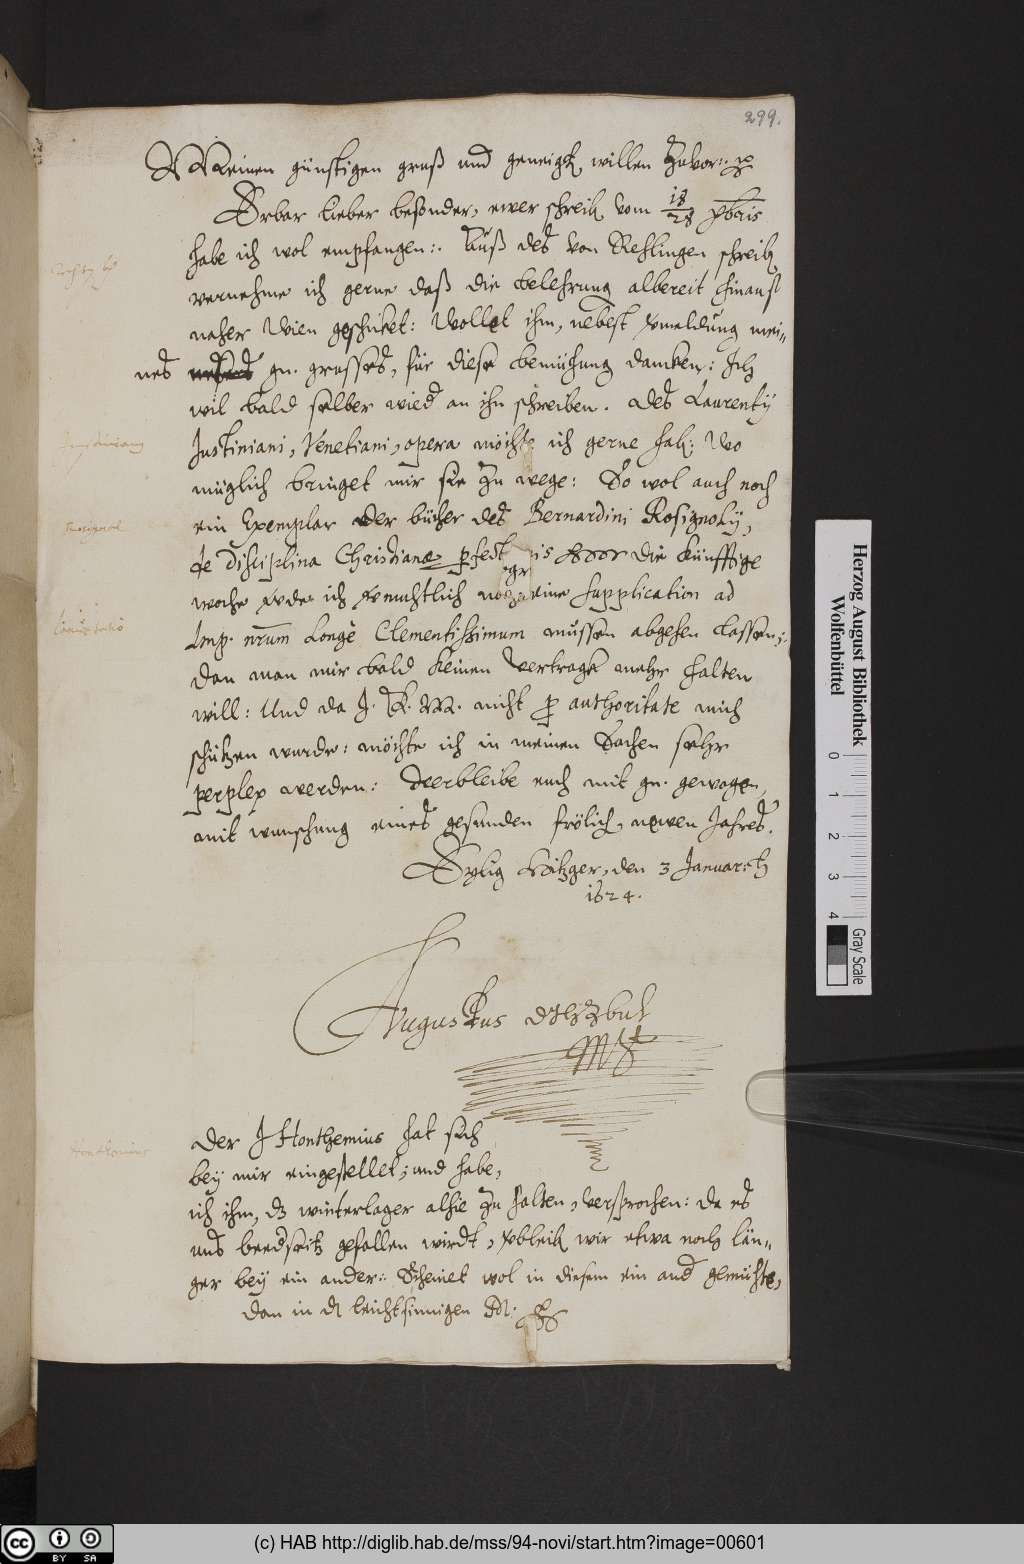 299.
Meinen günstigen gruß und geneigt willen zuvor:
Erbar lieber besonder, ewer schreib vom 18/28 xbris
habe ich wol empfangen: Auß des von Rehlingen schreib
vernehme ich gerne daß die belehrung albereit hinauf
naher Wien geschicket: Wollet ihm, nebest vmeldung mei-
nes gn. grusses, für diese bemühung dancken: Ich
wil bald selber wied an ihn schreiben. Des Laurentij
Justiniani, Venetiani, opera möchte ich gerne hab: Wo
müglich bringet mir sie zu wege: So wol auch noch
ein Exemplar der bücher des Bernardini Rosignolij,
de disciplina Christianæ perfect nis die künfftige
woche ich eine supplication ad
Imp. nrum longè Clementissimum müssen abgehen lassen;
dan man mir bald keinen vertragk mehr halten
will: Und da J. K. M. nicht p authoritate mich
schützen wurde: möchte ich in meinen sachen sehr
perplex werden: Verbleibe euch mit gn. gewogen,
mit wunschung eines gesunden frölich, newen Jahres.
Eylig hitzger, den 3 Januar:
1624.
Augustus HZBuL
Mpp
Der J Honthemius hat sich
bey mir eingestellet; und habe,
ich ihm, dz winterlager alhie zu halten, versprochen: da es
uns beedseitz gefallen wirdt, vbleib wir etwa noch län-
ger bey ein ander: Scheinet wol in diesem ein and gemüthe,
dan in d leichtsinnigen M.
Honthemius
Herzog August Bibliothek
Wolfenbüttel
0 1 2 3 4
Gray Scale
cc BY SA
(c) HAB http://diglib.hab.de/mss/94-novi/start.htm?image=00601